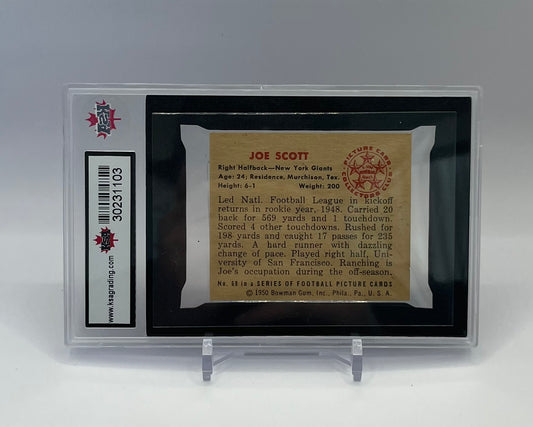 KSA
30231103
www.ksagrading.com
JOE SCOTT
Right Halfback—New York Giants
Age: 24; Residence, Murchison, Tex.
Height: 6-1 Weight: 200
PICTURE CARD
COLLECTORS CLUB
Led Natl. Football League in kickoff
returns in rookie year, 1948. Carried 20
back for 569 yards and 1 touchdown.
Scored 4 other touchdowns. Rushed for
198 yards and caught 17 passes for 235
yards. A hard runner with dazzling
change of pace. Played right half, Uni-
versity of San Francisco. Ranching is
Joe's occupation during the off-season.
No. 58 in a SERIES OF FOOTBALL PICTURE CARDS
© 1950 Bowman Gum, Inc., Phila., Pa., U. S. A.